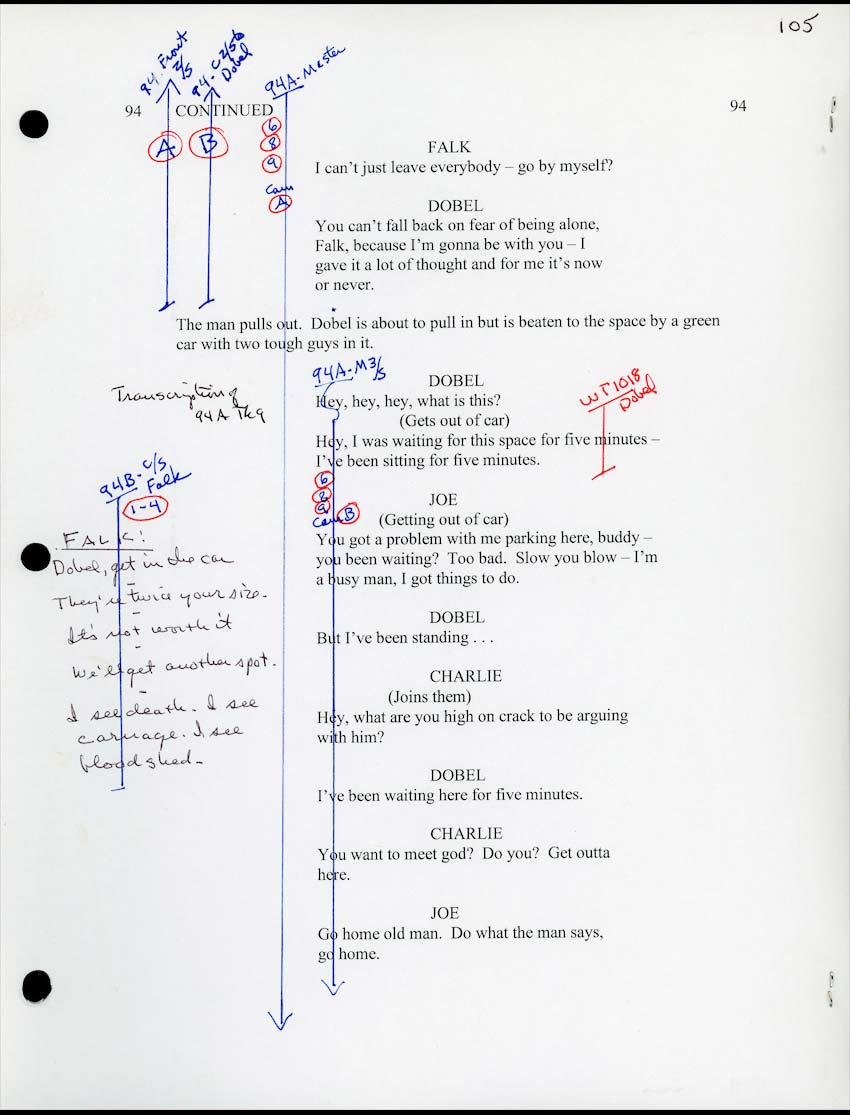 105
94 Front 2/S
94 - C 2/S to Dobel
94A-Master
94 CONTINUED 94
A B
6
8
9
Cam
A
FALK
I can't just leave everybody – go by myself?
DOBEL
You can't fall back on fear of being alone,
Falk, because I'm gonna be with you – I
gave it a lot of thought and for me it's now
or never.
The man pulls out. Dobel is about to pull in but is beaten to the space by a green
car with two tough guys in it.
94A-M3/S
WT1018
Dobel
Transcription of
94A Tk9
DOBEL
Hey, hey, hey, what is this?
(Gets out of car)
Hey, I was waiting for this space for five minutes –
I've been sitting for five minutes.
94B-C/S
Falk
1-4
6
8
9
Cam B
JOE
(Getting out of car)
You got a problem with me parking here, buddy –
you been waiting? Too bad. Slow you blow – I'm
a busy man, I got things to do.
FALK:
Dobel, get in the car
They're twice your size.
It's not worth it
We'll get another spot.
I see death. I see
carnage. I see
bloodshed.
DOBEL
But I've been standing . . .
CHARLIE
(Joins them)
Hey, what are you high on crack to be arguing
with him?
DOBEL
I've been waiting here for five minutes.
CHARLIE
You want to meet god? Do you? Get outta
here.
JOE
Go home old man. Do what the man says,
go home.